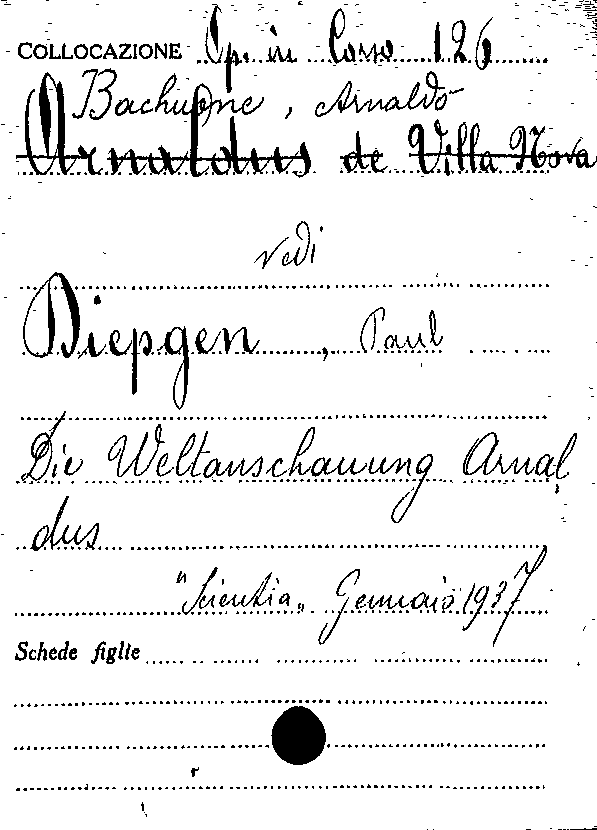 COLLOCAZIONE Op. in Corso 126
Bachuone, Arnaldo
Arnaldus de Villa Nova
vedi
Diepgen, Paul
Die Weltanschauung Arnal
dus
"Scientia" Gennaio 1937
Schede figlie